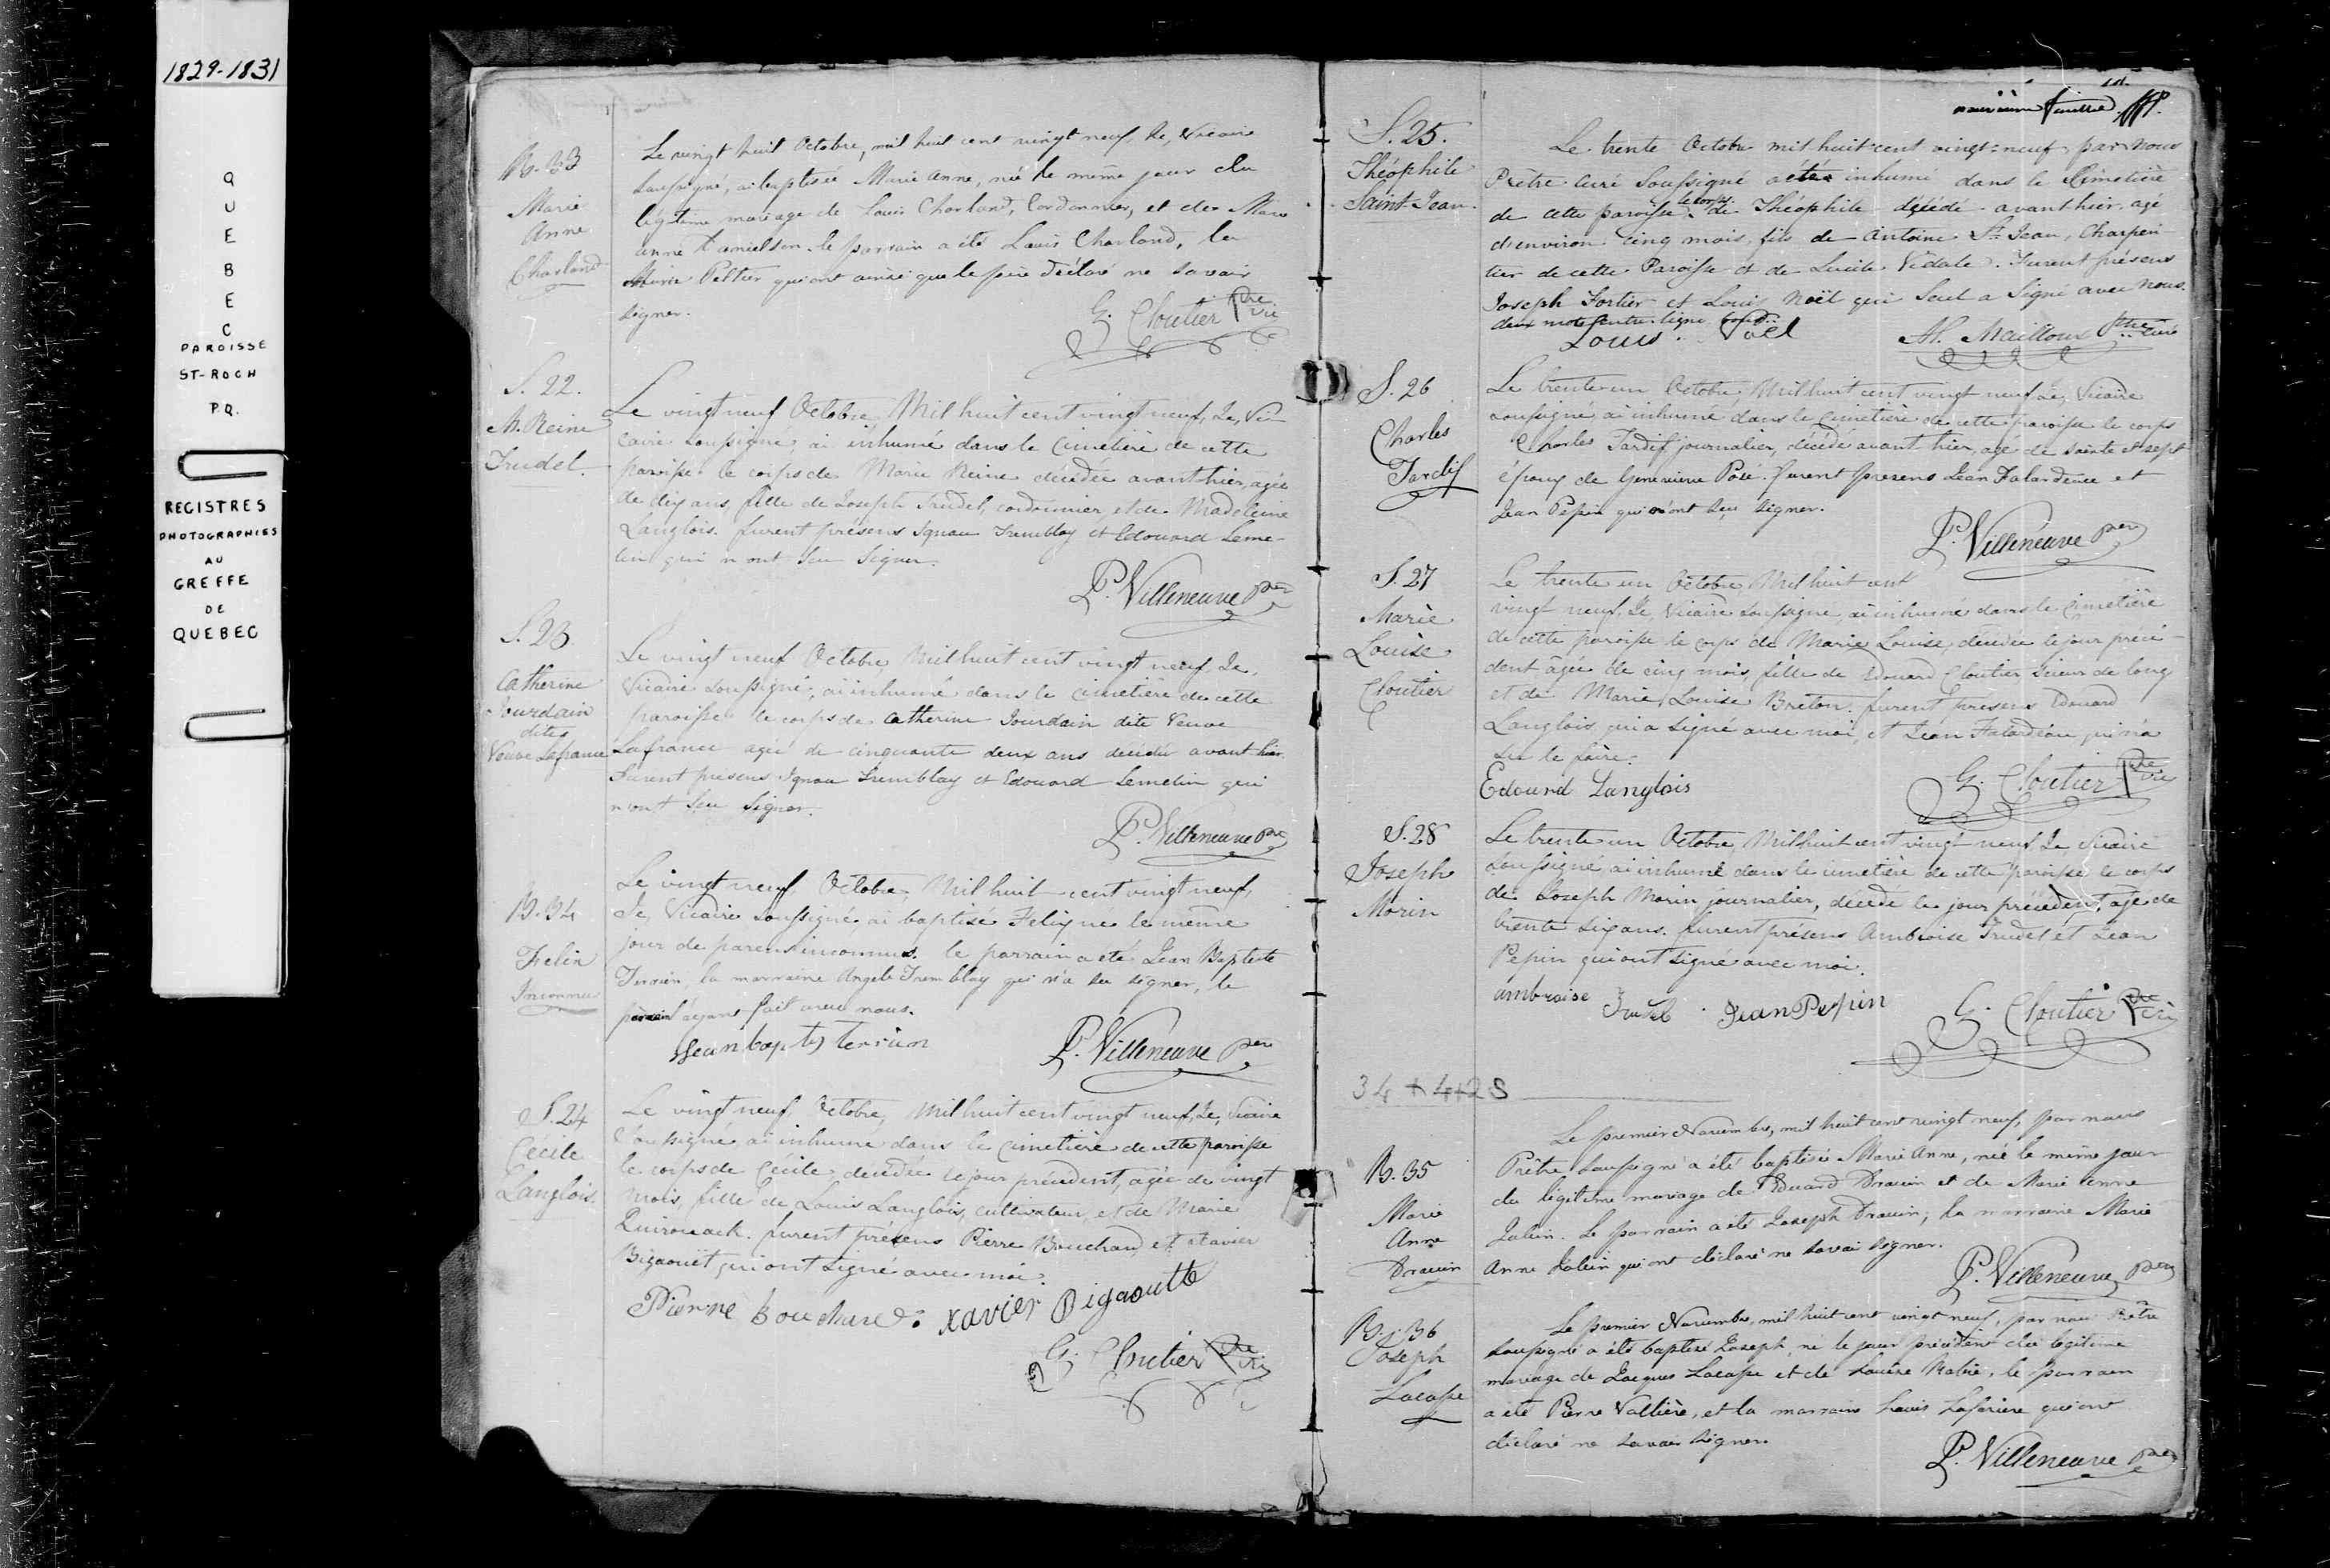 1829-1831
QUEBEC
PAROISSE
ST-ROCH
P.Q.
REGISTRES
PHOTOGRAPHIES
AU
GREFFE
DE
QUEBEC
B. 33
Marie
Anne
Charland
Le vingt huit Octobre, mil huit cent vingt neuf, Je, Vicaire
Soussigné, ai baptisée Marie Anne, née le même jour du
légitime mariage de Louis Charland, Cordonnier, et de Marie
Anne . le parrain a été Louis Charland, la
Marie Peltier qui ont ainsi que le père déclaré ne savoir
signer.
G. Cloutier Ptre Vic
S. 22.
M. Reine
Trudel.
Le vingt neuf Octobre, Mil huit cent vingt neuf, Je, Vi-
caire soussigné, ai inhumé dans le Cimetière de cette
paroisse le corps de Marie Reine décédée avant hier, agée
de dix ans, fille de Joseph Trudel, cordonnier, et de Madeleine
Langlois. furent présens Ignace Tremblay et Edouard Leme-
lin qui n'ont seu signer.
P. Villeneuve Ptre
S. 23
Catherine
Jourdain
dite
Veuve Lafrance
Le vingt neuf Octobre, Mil huit cent vingt neuf, Je,
Vicaire soussigné, ai inhumé dans le cimetière de cette
paroisse le corps de Catherine Jourdain dite Veuve
Lafrance agée de cinquante deux ans decédée avant hier.
Furent présens Ignace Tremblay et Edouard Lemelin qui
n'ont seu signer.
P. Villeneuve Ptre
B. 34
Felix
Inconnu
Le vingt neuf Octobre, Mil huit cent vingt neuf,
Je, Vicaire soussigné ai baptisé Felix né le même
jour de parens inconnus. le parrain a été Jean Baptiste
Terrien, la marraine Angele Tremblay qui n'a su signer, le
parrain l'ayant fait avec nous.
Jean baptis terrien
P. Villeneuve Ptre
S. 24
Cécile
Langlois.
Le vingt neuf, Octobre, Mil huit cent vingt neuf, Je, Vicaire
Soussigné ai inhumé dans le cimetière de cette paroisse
le corps de Cécile, decédée le jour précédent, agée de vingt
mois, fille de Louis Langlois, cultivateur, et de Marie
Quirouack. furent présens Pierre Bouchard et Xavier
Bigaouët qui ont signé avec moi.
Pierre bouchard : xavier Bigaoutte
G. Cloutier Ptre Vic
S. 25.
Théophile
Saint-Jean.
Le trente Octobre mil huit-cent vingt-neuf par nous
Prêtre Curé Soussigné a été inhumé dans le Cimetière
de cette paroisse le corps de Théophile décédé avant hier, agé
d'environ cinq mois, fils de Antoine St Jean, Charpen
tier de cette Paroisse et de Lucile Vidale. Furent présens
Joseph Fortier et Louis Noël qui Seul a Signé avec nous.
deux mots entre-ligne bons.
Louis. Noel
Al. Mailloux Ptre Curé
S. 26
Charles
Tardif
Le trente-un Octobre, Mil huit cent vingt neuf, Je, Vicaire
soussigné, ai inhumé dans le cimetière de cette paroisse le corps
Charles Tardif journalier, décédé avant hier, agé de et sept
époux de Genevieve . furent presens Jean Falardeau et
Jean Pepin qui n'ont seu signer.
P. Villeneuve Ptre
S. 27
Marie
Louise
Cloutier
Le trente un Octobre, Mil huit cent
vingt neuf, Je, Vicaire soussigné, ai inhumé dans le Cimetière
de cette paroisse le corps de Marie Louise, decédée le jour précé-
dent âgée de cinq mois, fille de Edouard Cloutier Scieur de long
et de Marie Louise Breton. furent présens Edouard
Langlois qui a signé avec moi, et Jean Falardeau qui n'a
seu le faire.
Edouard Langlois
G. Cloutier Ptre Vic
S. 28
Joseph
Morin
Le trente un Octobre, Mil huit cent vingt neuf, Je, Vicaire
soussigné, ai inhumé dans le cimetière de cette paroisse le corps
de Joseph Morin journalier, décédé le jour précédent, agé de
trente six ans. furent présens Ambroise Trudel et Jean
Pepin qui ont signé avec moi.
ambroise Trudel . Jean Pepin
G. Cloutier Ptre Vic
B. 35
Marie
Anne
Drouin
Le premier Novembre, mil huit cent vingt neuf, par nous
Prêtre Soussigné a été baptisée Marie Anne, née le même jour
du légitime mariage de Edouard Drouin et de Marie Anne
. Le parrain a été Joseph Drouin; la marraine Marie
Anne qui ont déclaré ne savoi signer.
P. Villeneuve Ptre
B. 36
Joseph
Lacasse
Le premier Novembre, mil huit cent vingt neuf, par nous Prêtre
soussigné a été baptisé Joseph, né le jour précédent du légitime
mariage de Jacques Lacasse et de . le parrain
a été Pierre Vallière, et la marraine qui ont
déclaré ne savoir signer.
P. Villeneuve Ptre